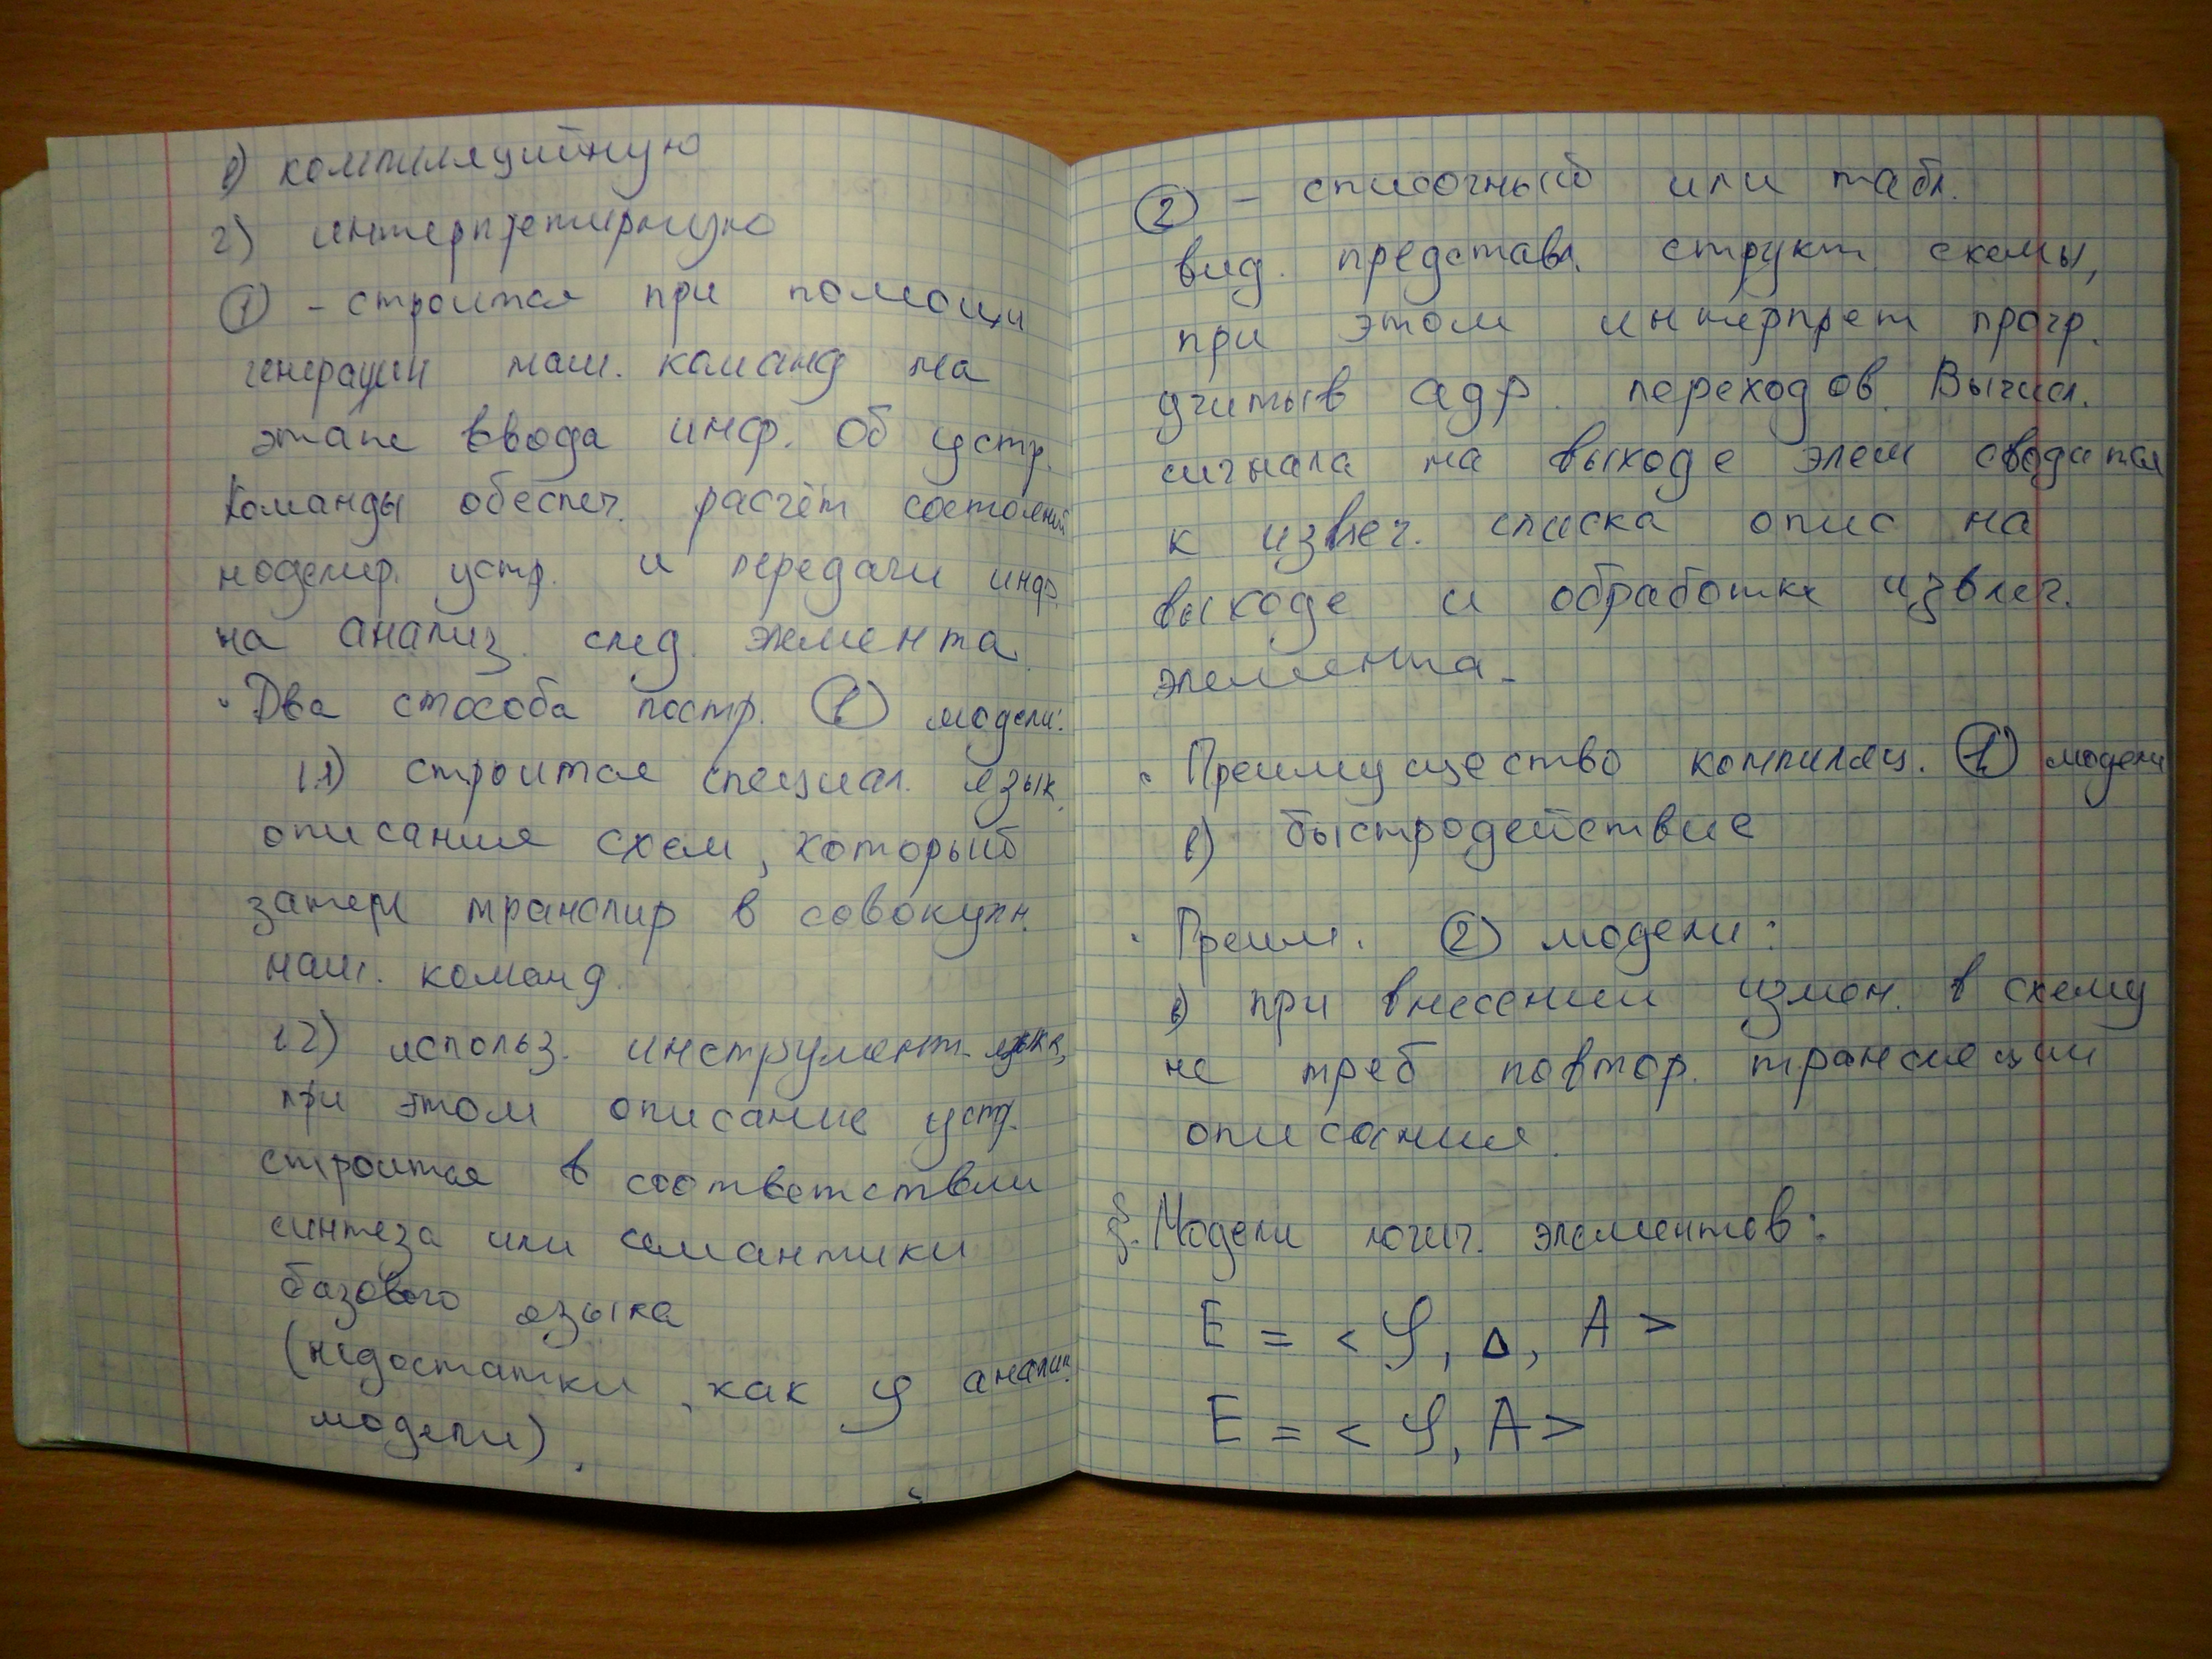 1) компиляцийную
2) интерпретирную
① – строится при помощи
генерации маш. команд на
этапе ввода инф. Об устр.
Команды обеспеч. расчёт состояний
моделир. устр. и передачи инф.
на анализ. след. элемента.
· Два способа постр. ① модели:
1.1) строится специал. язык.
описания схем, который
затем транслир в совокупн.
маш. команд.
1.2) использ. инструмент. языка,
при этом описание устр.
строится в соответствии
синтеза или семантики
базового языка
(недостатки, как у аналит.
модели).
② – списочный или табл.
вид. представл. структ схемы,
при этом интерпрет прогр.
учитыв адр. переходов. Вычисл.
сигнала на выходе элем сводится
к извлеч. списка опис на
выходе и обработке извлеч.
элемента.
· Преимущество компиляц. ① модели
1) быстродействие
· Преим. ② модели:
1) при внесении измен. в схему
не треб повтор. трансляции
описания.
§. Модели логич. элементов:
E = < φ, Δ, A >
E = < φ, A >